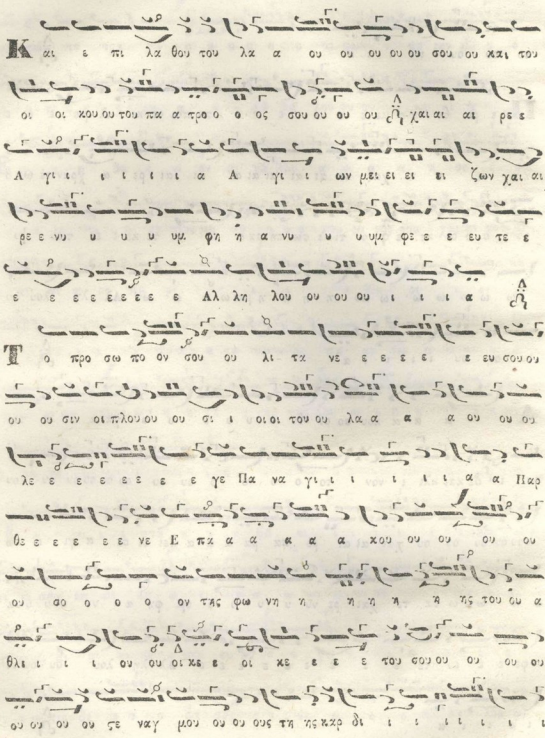 Και ε πι λα θου του λα α ου ου ου ου ου σου ου και του
οι οι κου ου του πα α τρο ο ο ος σου ου ου ου χαι αι αι ρε ε
Α γι ι ι ι ι ι ι α Α γι ι ι ων μει ει ει ει ζων χαι αι
ρε ε νυ υ υ υ υμ φη η α νυ υ υ υμ φε ε ε ευ τε ε
ε ε ε ε ε ε ε ε ε Αλ λη λου ου ου ου ι ι α
Το προ σω πο ον σου ου λι τα νε ε ε ε ε ε ευ σου ου
ου ου σιν οι πλου ου ου σι ι οι οι του ου λα α α α ου ου ου
λε ε ε ε ε ε ε ε γε Πα να γι ι ι ι ι ι α α Παρ
θε ε ε ε ε ε νε Ε πα α α α α α κου ου ου ου ου
ου σο ο ο ο ον της φω νη η η η η η ης του ου α
θλι ι ι ι ου ου οι κε ε οι κε ε ε ε του σου ου ου ου ου
ου ου ου ου ϛε ναγ μου ου ου ους τη ης καρ δι ι ι ι ι ι ι